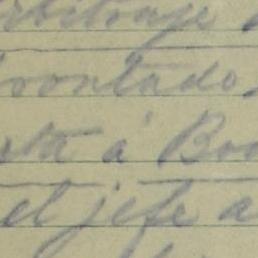 arbitraje
rontado,
sta á Bo
el jefe a